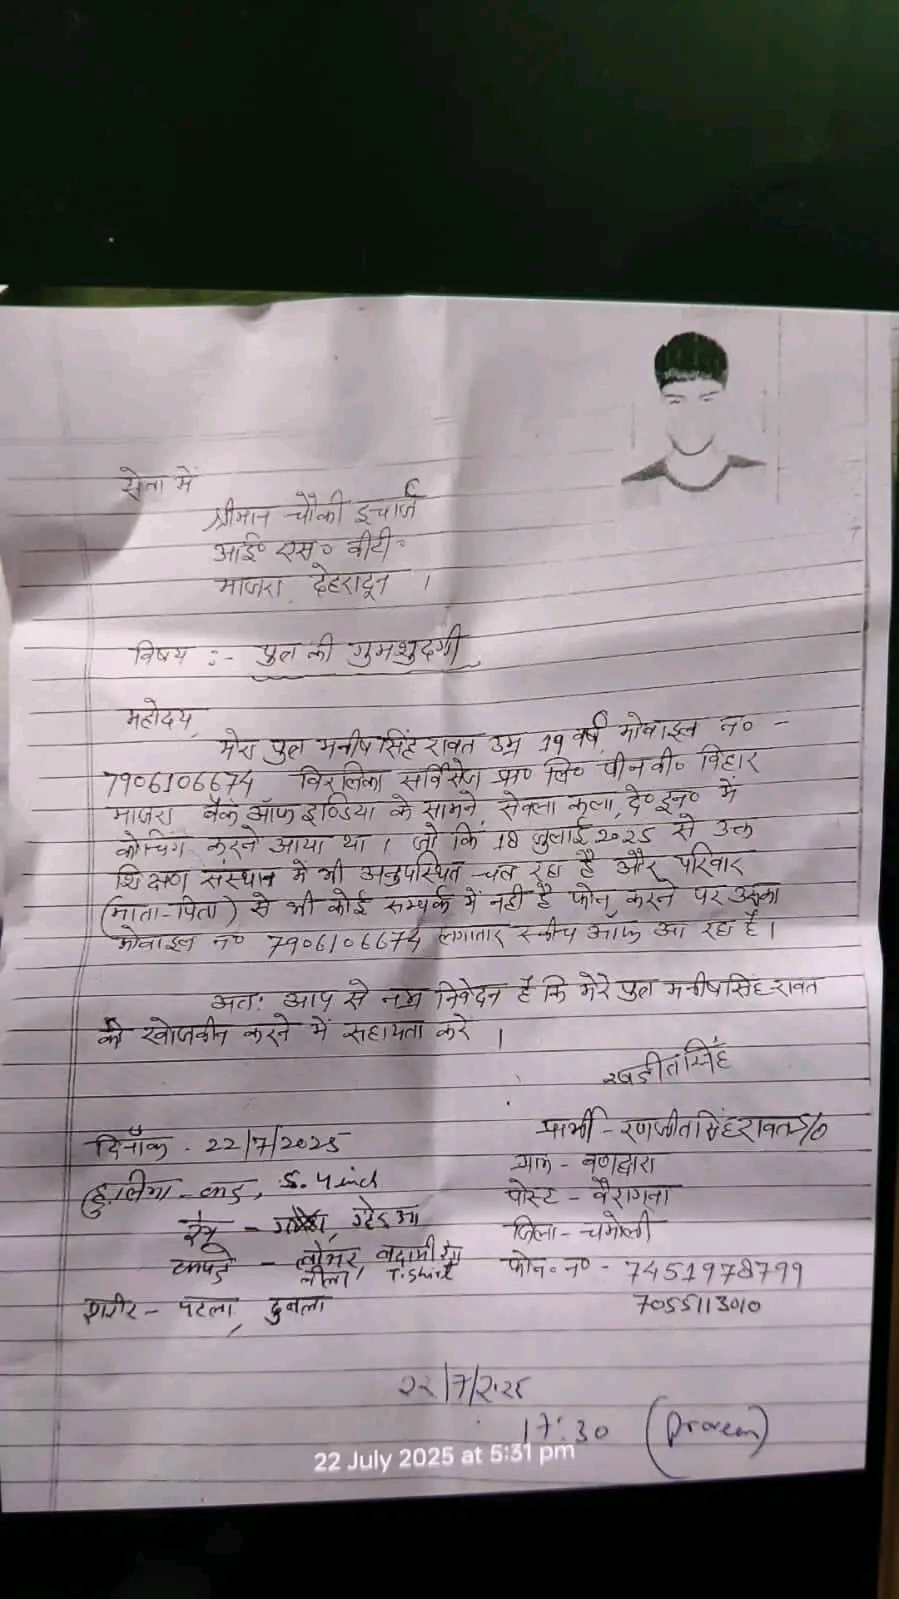 सेवा में
श्रीमान चौकी इंचार्ज
आई० एस० बीटी०
माजरा देहरादून ।
विषय :- पुत्र की गुमशुदगी
महोदय,
मेरा पुत्र मनीष सिंह रावत उम्र 19 वर्ष मोबाइल न० -
7906106674 सर्विसेज प्रा० लि० विहार
माजरा बैंक ऑफ इण्डिया के सामने, सेवला कला, दे०इन० में
कोचिंग करने आया था । जो कि 18 जुलाई 2025 से उक्त
शिक्षण संस्थान में भी अनुपस्थित चल रहा है और परिवार
(माता-पिता) से भी कोई सम्पर्क में नही है फोन करने पर उसका
मोबाइल न० 7906106674 लगातार स्वीच ऑफ आ रहा है।
अतः आप से नम्र निवेदन है कि मेरे पुत्र मनीष सिंह रावत
की खोजबीन करने में सहायता करे ।
दिनाँक - 22/7/2025
प्रार्थी - रणजीत सिंह रावत S/o
हुलिया - कद, 5.4 inch
ग्राम - बणद्वारा
पोस्ट - वैरागना
जिला - चमोली
कपड़े - लोअर, बदामी रंग
नीला T.Shirt
फोन० न० - 7451978799
7055113010
शरीर - पतला, दुबला
22/7/2025
17:30
22 July 2025 at 5:31 pm